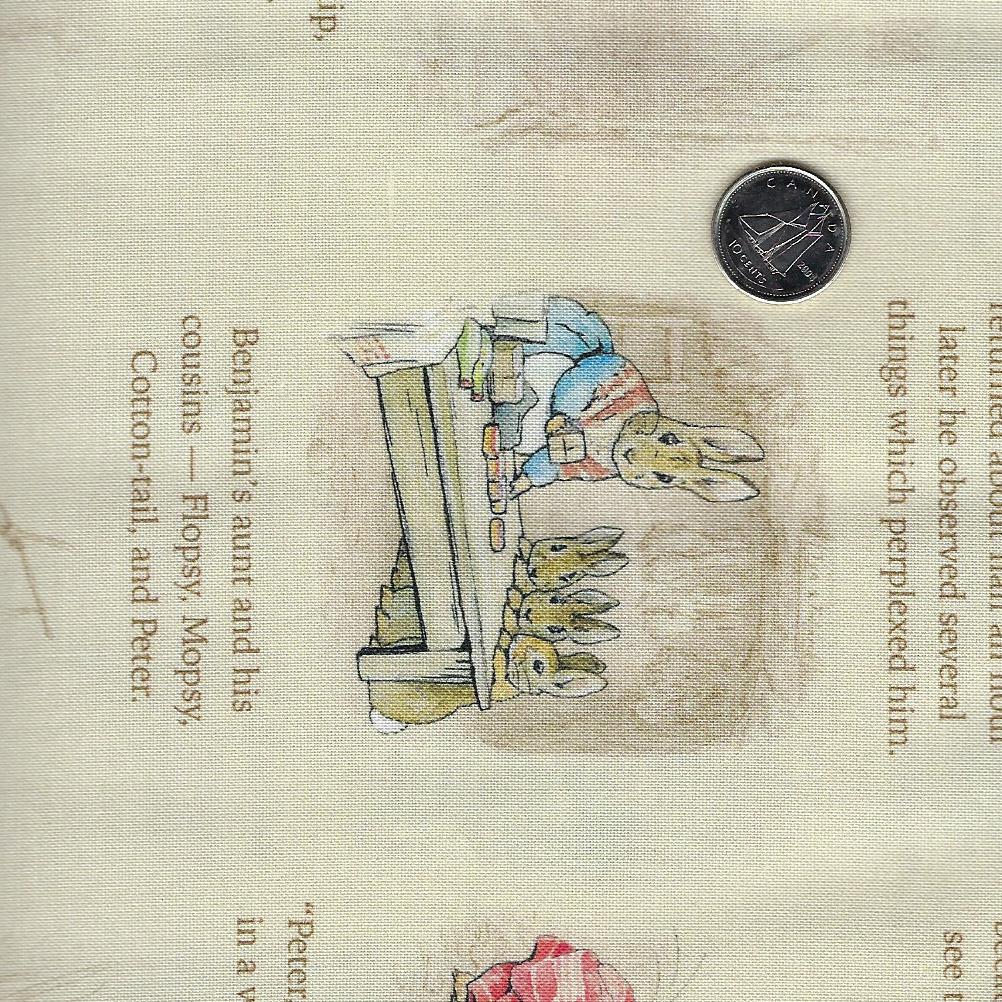 returned about half an hour
later he observed several
things which perplexed him.
Benjamin's aunt and his
cousins — Flopsy, Mopsy,
Cotton-tail, and Peter.
"Peter,
in a
see
CANADA
10 CENTS